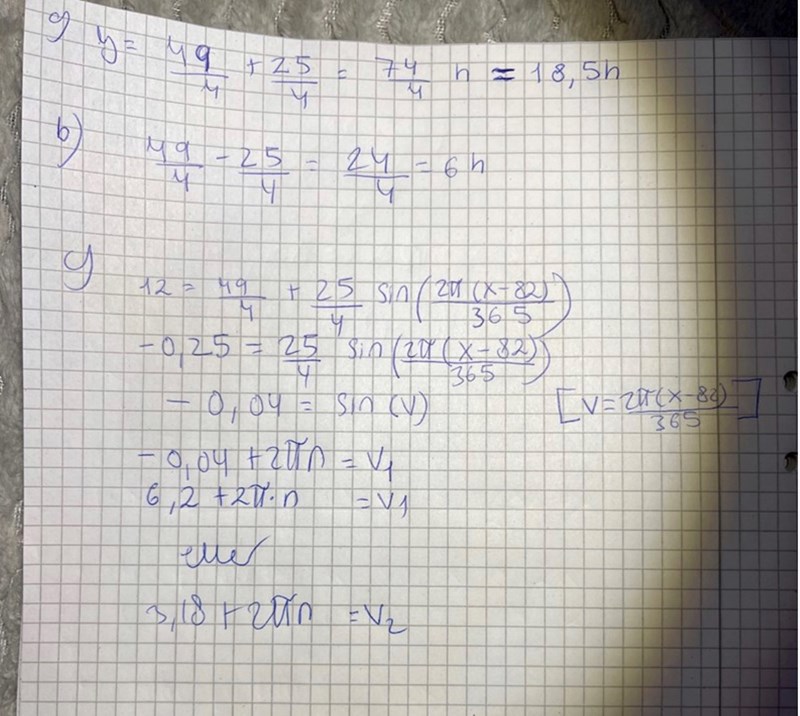 a) y = 49/4 + 25/4 = 74/4 h = 18,5h
b) 49/4 - 25/4 = 24/4 = 6 h
c)
12 = 49/4 + 25/4 sin(2π(x-82)/365)
-0,25 = 25/4 sin(2π(x-82)/365)
-0,04 = sin(v) [v=2π(x-82)/365]
-0,04 + 2πn = v₁
6,2 + 2π·n = v1
eller
3,18 + 2πn = v₂